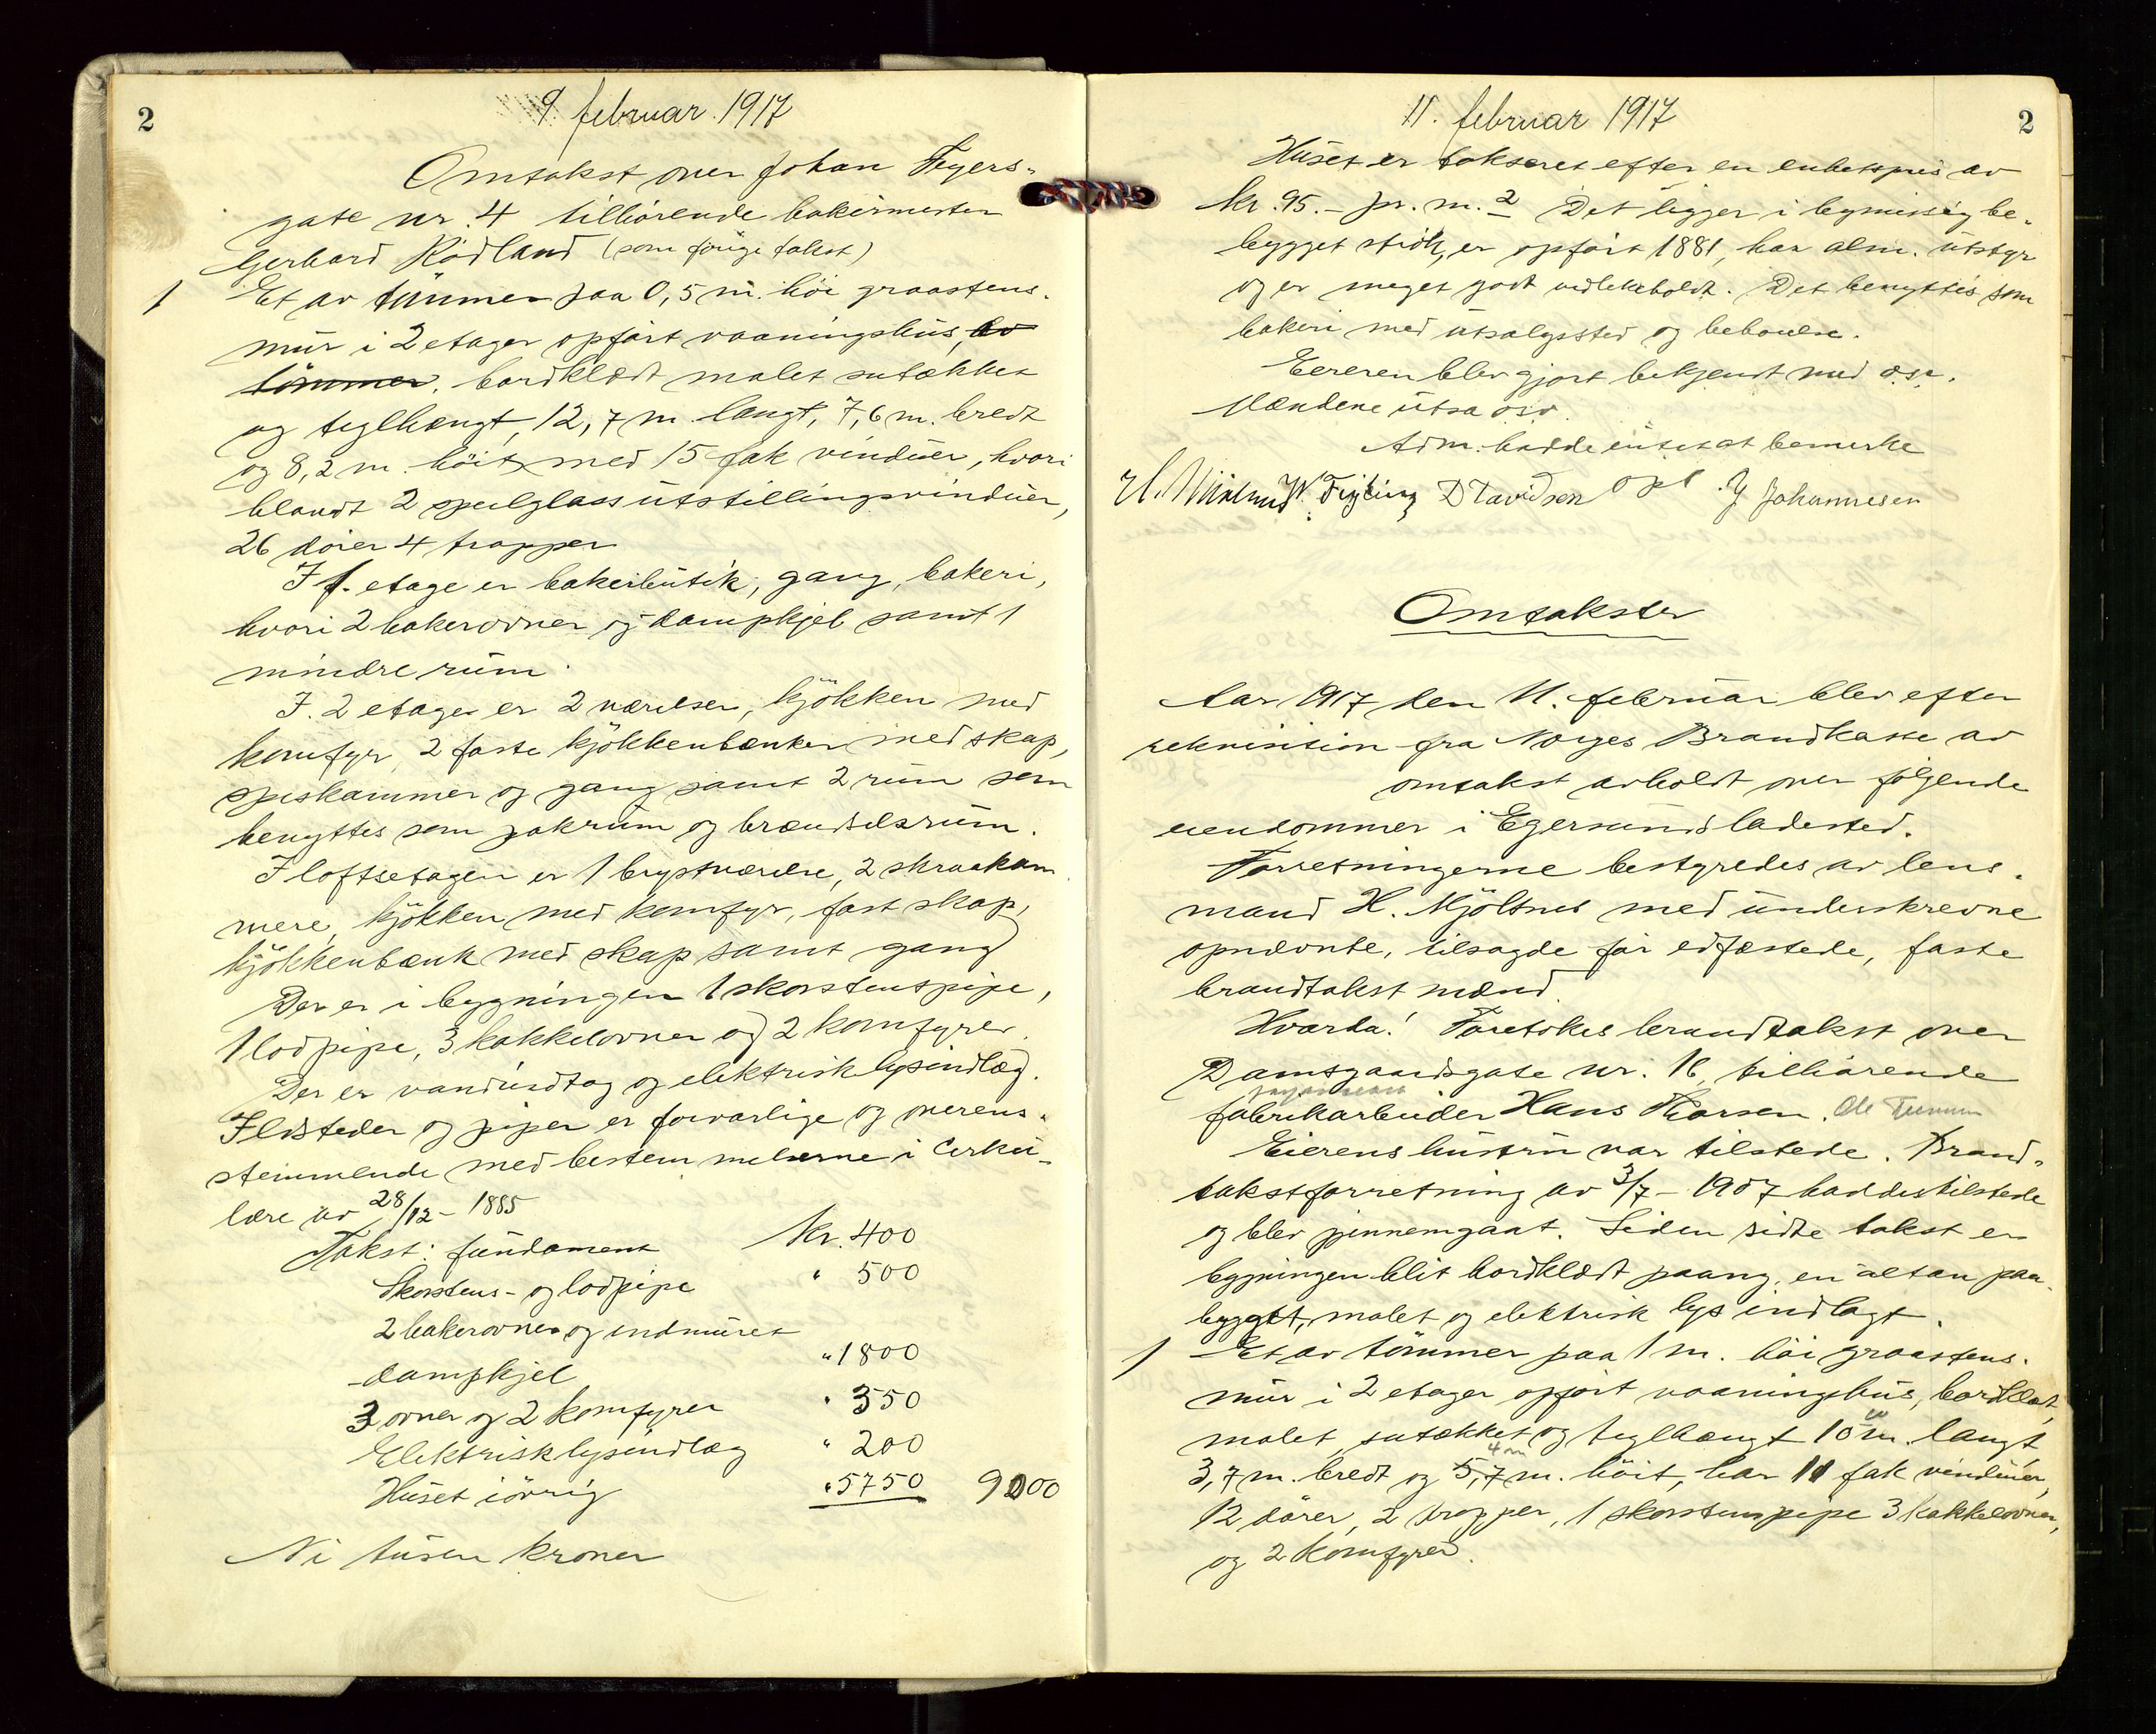 2
9. februar 1917
Omtakst over Johan Feyers-
gate nr. 4 tilhörende bakermester
Gerhard Rödland (som forrige takst)
1 Et av tömmer paa 0,5 m. höi graastens-
mur i 2 etager opfört vaaningshus, av
tömmer, bordklædt malet sutækket
og teglhængt, 12,7 m. langt, 7,6 m. bredt
og 8,2 m. höit, med 15 fak vinduer, hvori
blandt 2 speilglassutstillingsvinduer,
26 dörer 4 trapper
I 1. etage er bakeributik, gang, bakeri,
hvori 2 bakerovner og dampkjel samt 1
mindre rum.
I. 2 etage er 2 værelser, kjökken med
komfyr, 2 faste kjökkenbænker med skap,
spiskammer og gang samt 2 rum som
benyttes som pakrum og brændselsrum.
I loftsetagen er 1 brystværelse, 2 skraakam
mere, kjökken med komfyr, fast skap,
kjökkenbænk med skap samt gang
Der er i bygningen 1 skorstenspipe,
1 lodpipe, 3 kakkelovner og 2 komfyrer.
Der er vandindtag og elektrisk lysindlæg.
Ildsteder og piper er forvarlige og overens-
stemmende med bestemmelserne i Cirku-
lære av 28/12 - 1885
Takst: fundament Kr. 400
Skorstens- og lodpipe " 500
2 bakerovner og indmuret
dampkjel " 1800
3 ovner og 2 komfyrer " 350
Elektrisk lysindlæg " 200
Huset iövrig " 5750 9000
Ni tusen kroner
11. februar 1917
2
Huset er takseret efter en enhetspris av
kr. 95.- pr. m.2 Det ligger i bymessig be-
bygget strök, er opfört 1881, har alm. utstyr
og er meget godt vedlikeholdt. Det benyttes som
bakeri med utsalgssted og beboelse.
Eieren blev gjort bekjendt med osv.
Mændene utsa osv.
Adm. hadde intet at bemerke
H. Mjölsnes W. Feyling D Davidsen opl. J Johannesen
Omtakster
Aar 1917 den 11. februar blev efter
rekvisition fra Norges Brandkasse av
omtakst avholdt over fölgende
eiendommer i Egersunds ladested.
Forretningerne bestyredes av lens-
mand H. Mjölsnes med underskrevne
opnævnte, tilsagde för edfæstede, faste
brandtakst mænd.
Hvorda! Foretokes brandtakst over
Damsgaardsgate nr. 16, tilhörende
fabrikarbeider Hans Thorsen. Ole
Eierens hustru var tilstede. Brand-
takstforretning av 3/7 - 1907 haddes tilstede
og blev gjennemgaat. Siden sidte takst er
bygningen blit bordklædt paany, en altan paa-
bygget, malet og elektrisk lys indlagt.
1 Et av tömmer paa 1 m. höi graastens-
mur i 2 etager opfört vaaningshus, bordklædt,
malet, sutækket og teglhængt 10 m. langt,
4 m
3,7 m. bredt og 5,7 m. höit, har 11 fak vinduer,
12 dörer, 2 trapper, 1 skorstenspipe 3 kakkelovner,
og 2 komfyrer.